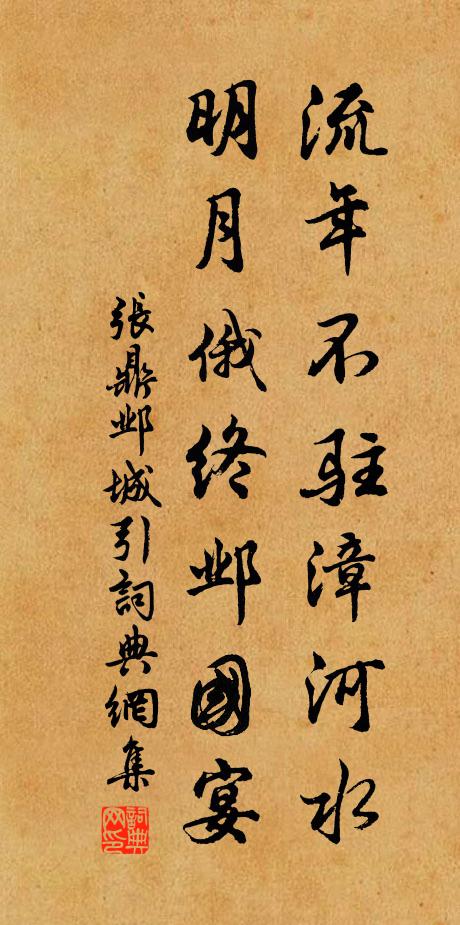 流年不駐漳河水
明月俄終邺國宴
張鼎邺城引詞典網集
詞典网印